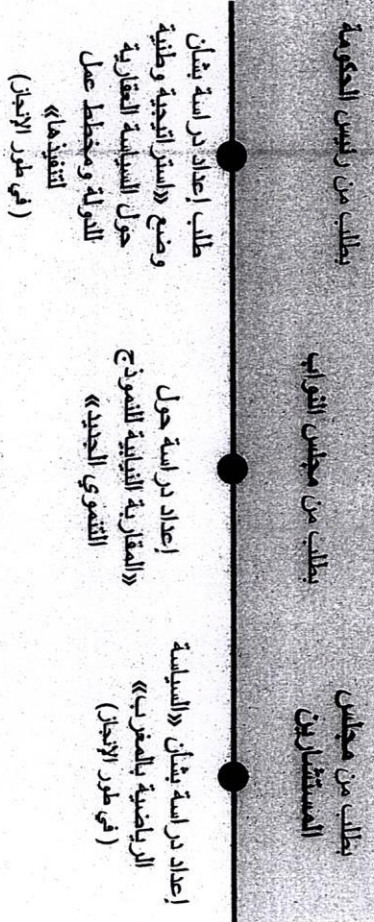 بطلب من رئيس الحكومة
طلب إعداد دراسة بشأن
وضع «استراتيجية وطنية
حول السياسة العقارية
للدولة ومخطط عمل
لتنفيذها»
(في طور الإنجاز)
بطلب من مجلس النواب
إعداد دراسة حول
«المقاربة النيابية للنموذج
التنموي الجديد»
بطلب من مجلس
المستشارين
إعداد دراسة بشأن «السياسة
الرياضية بالمغرب»
(في طور الإنجاز)